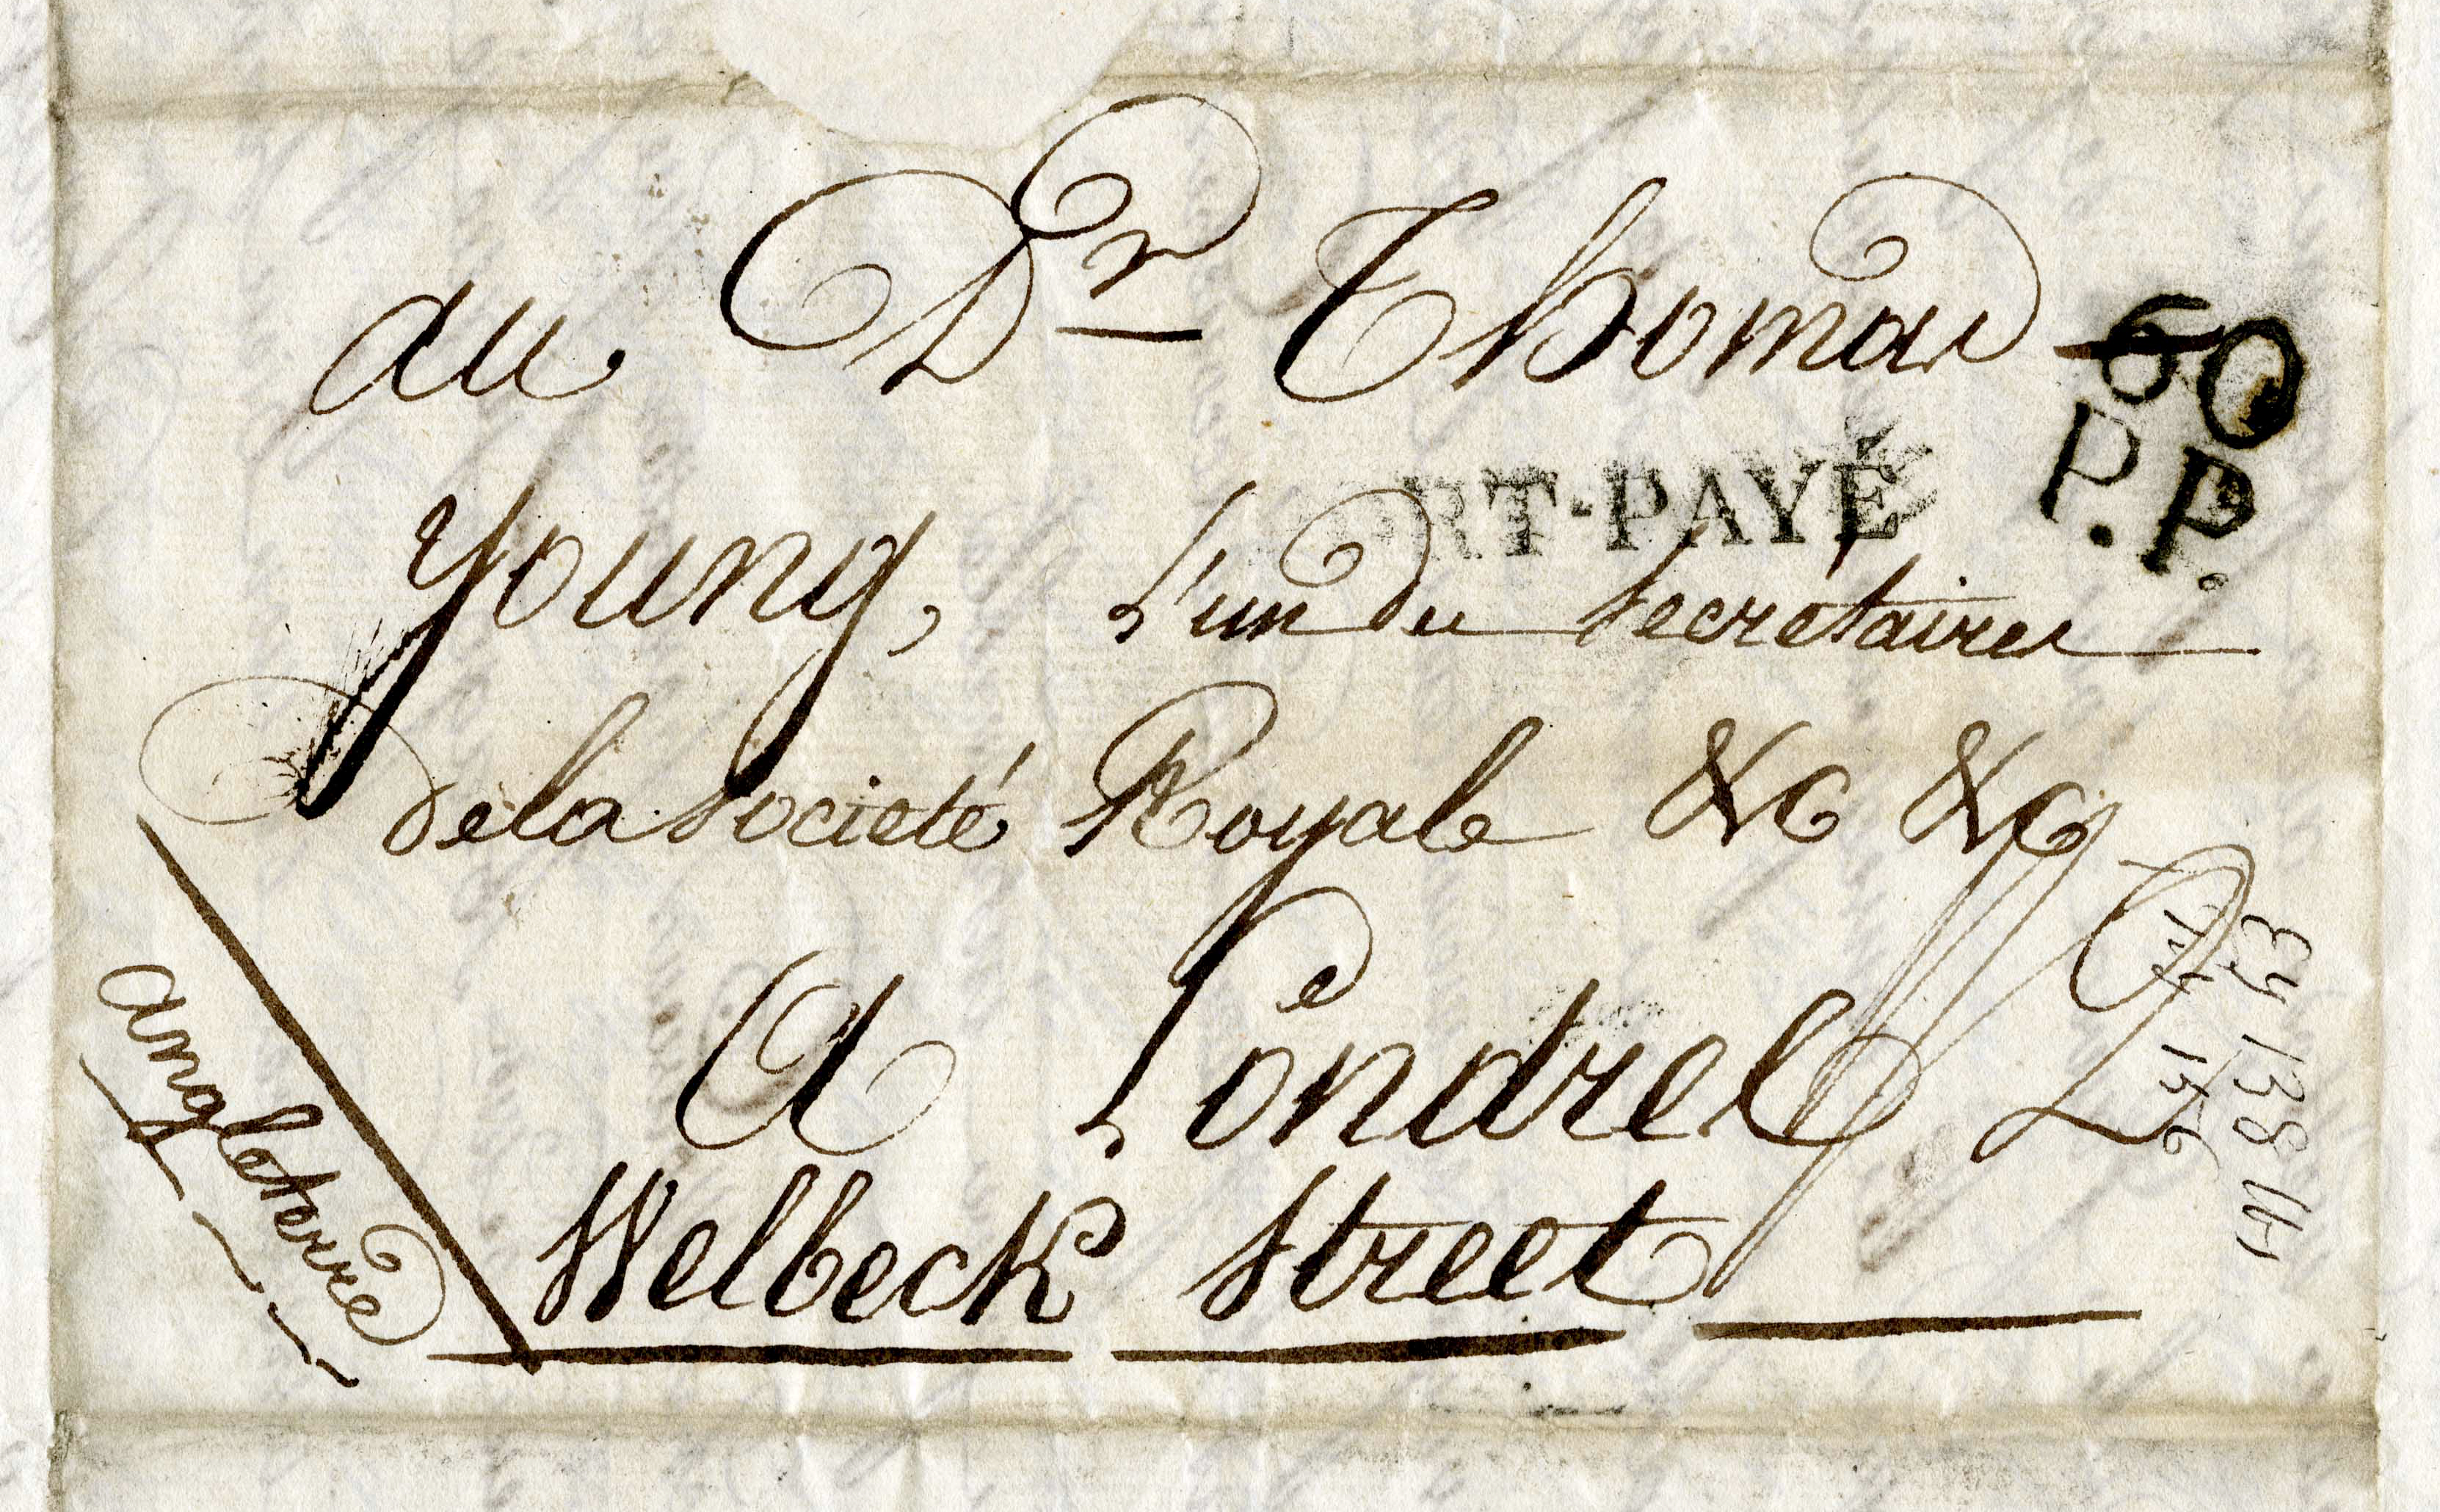 au Dr Thomas
60
P.P.
PORT-PAYÉ
Young, L'un des Secrétaires
de la Societé Royale &c &c
A Londres
Welbeck Street
Angleterre